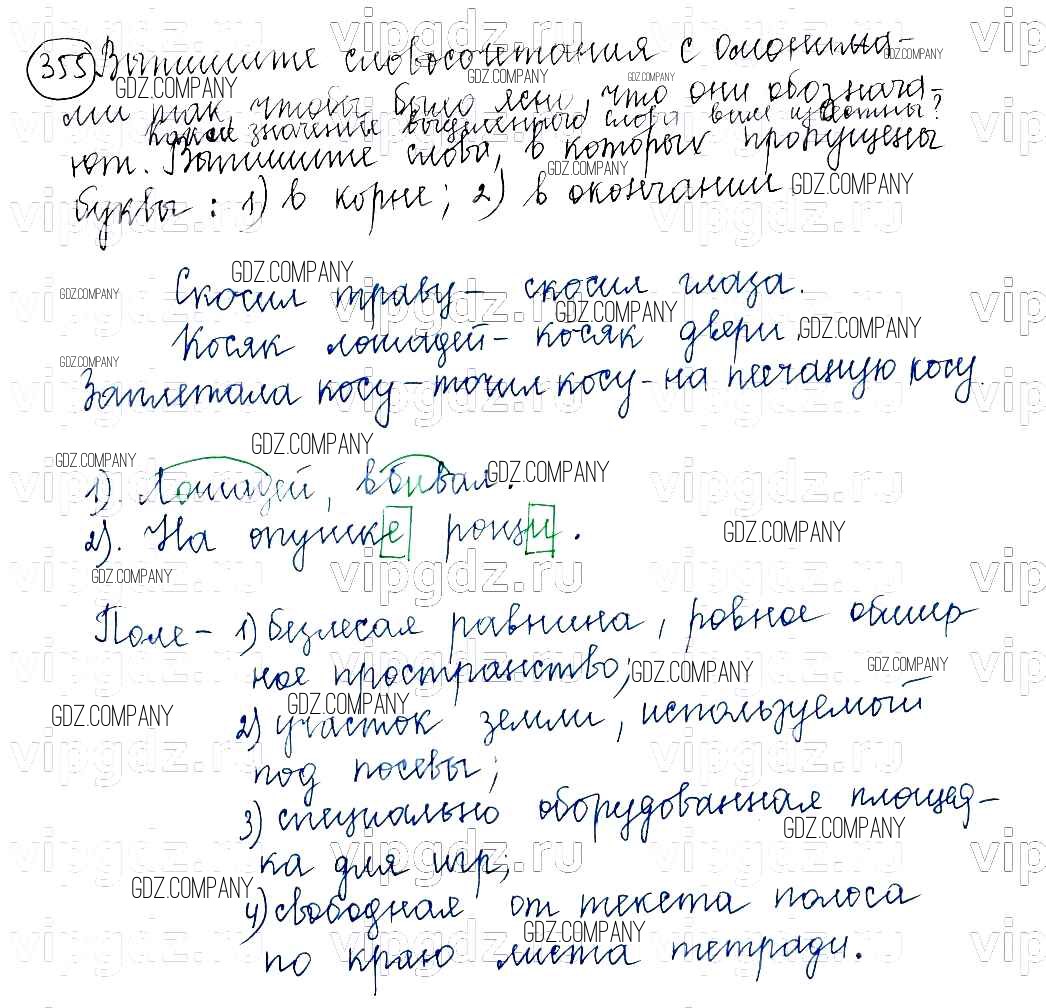 355 Выпишите словосочетания с омонима-
ми так, чтобы было ясно, что они обознача-
Какие значения выделенного слова вам известны?
ют. Выпишите слова, в которых пропущены
буквы: 1) в корне; 2) в окончании
Скосил траву – скосил глаза.
Косяк лошадей – косяк двери,
Заплетала косу – точил косу – на песчаную косу.
1). Лошадей, вбивал.
2). На опушке рощи.
Поле – 1) безлесая равнина, ровное обшир
ное пространство;
2) участок земли, используемый
под посевы;
3) специально оборудованная площад-
ка для игр;
4) свободная от текста полоса
по краю листа тетради.